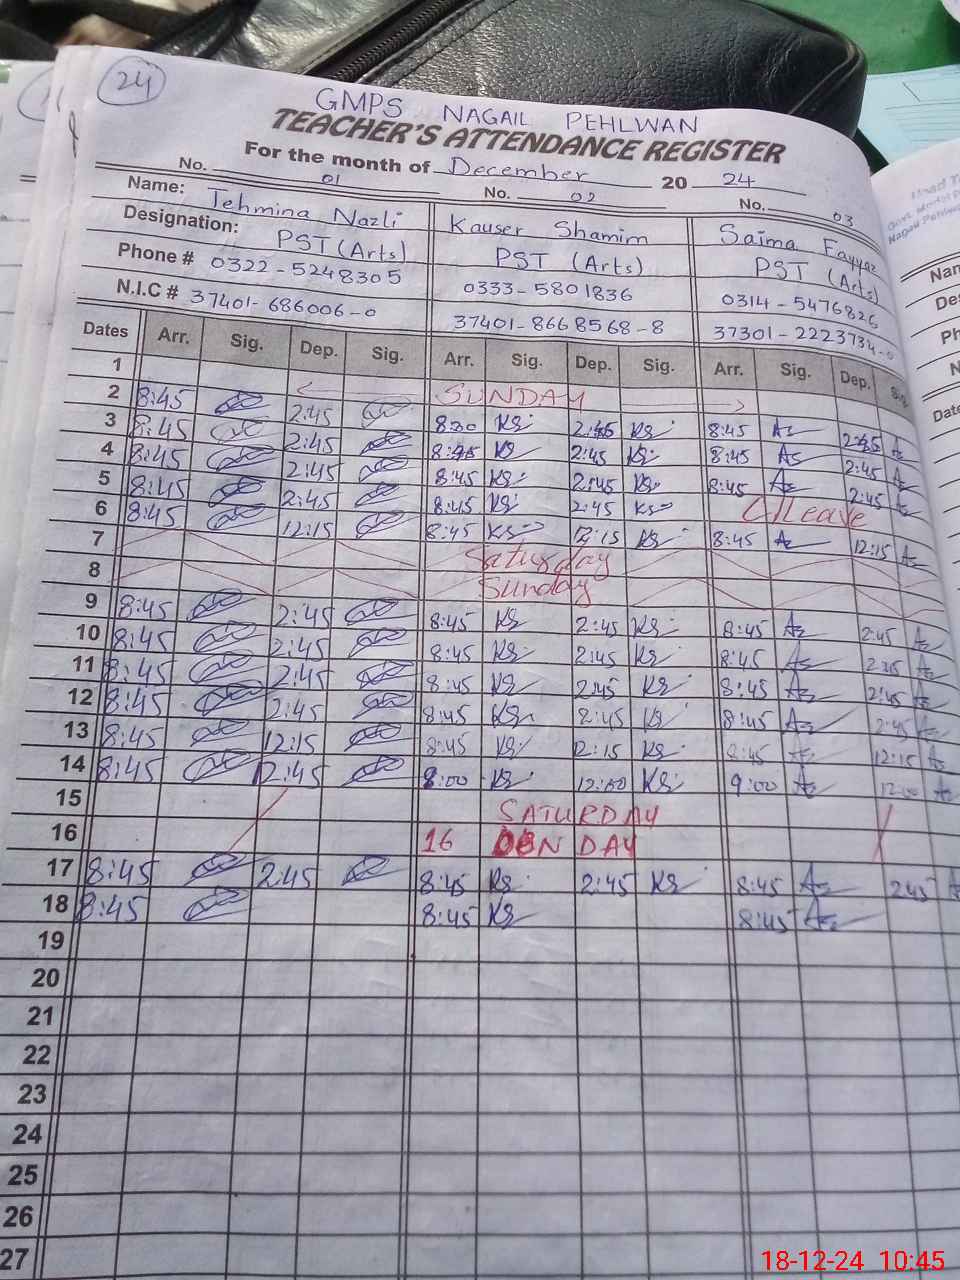 24
GMPS NAGAIL PEHLWAN
TEACHER'S ATTENDANCE REGISTER
For the month of December 20 24
No. 01 No. 02 No. 03
Name: Tehmina Nazli Kauser Shamim Saima Fayyaz
Designation: PST (Arts) PST (Arts) PST (Arts)
Phone # 0322-5248305 0333-5801836 0314-5476826
N.I.C # 37401-686006-0 37401-8668568-8 37301-2223734-0
Dates Arr. Sig. Dep. Sig. Arr. Sig. Dep. Sig. Arr. Sig. Dep. Sig.
1 SUNDAY
2 8:45 2:45 8:30 KS 2:45 KS 8:45 As 2:45 As
3 8:45 2:45 8:45 KS 2:45 KS 8:45 As 2:45 As
4 8:45 2:45 8:45 KS 2:45 KS 8:45 As 2:45 As
5 8:45 2:45 8:45 KS 2:45 KS Leave
6 8:45 12:15 8:45 KS 12:15 KS 8:45 As 12:15 As
7 Saturday
8 Sunday
9 8:45 2:45 8:45 KS 2:45 KS 8:45 As 2:45 As
10 8:45 2:45 8:45 KS 2:45 KS 8:45 As 2:45 As
11 8:45 2:45 8:45 KS 2:45 KS 8:45 As 2:45 As
12 8:45 2:45 8:45 KS 2:45 KS 8:45 As 2:45 As
13 8:45 12:15 8:45 KS 12:15 KS 8:45 As 12:15 As
14 8:45 12:45 8:00 KS 12:00 KS 9:00 As 12:00 As
15 SATURDAY
16 16 NDAY
17 8:45 2:45 8:45 KS 2:45 KS 8:45 As 2:45 As
18 8:45 8:45 KS 8:45 As
19
20
21
22
23
24
25
26
27
18-12-24 10:45